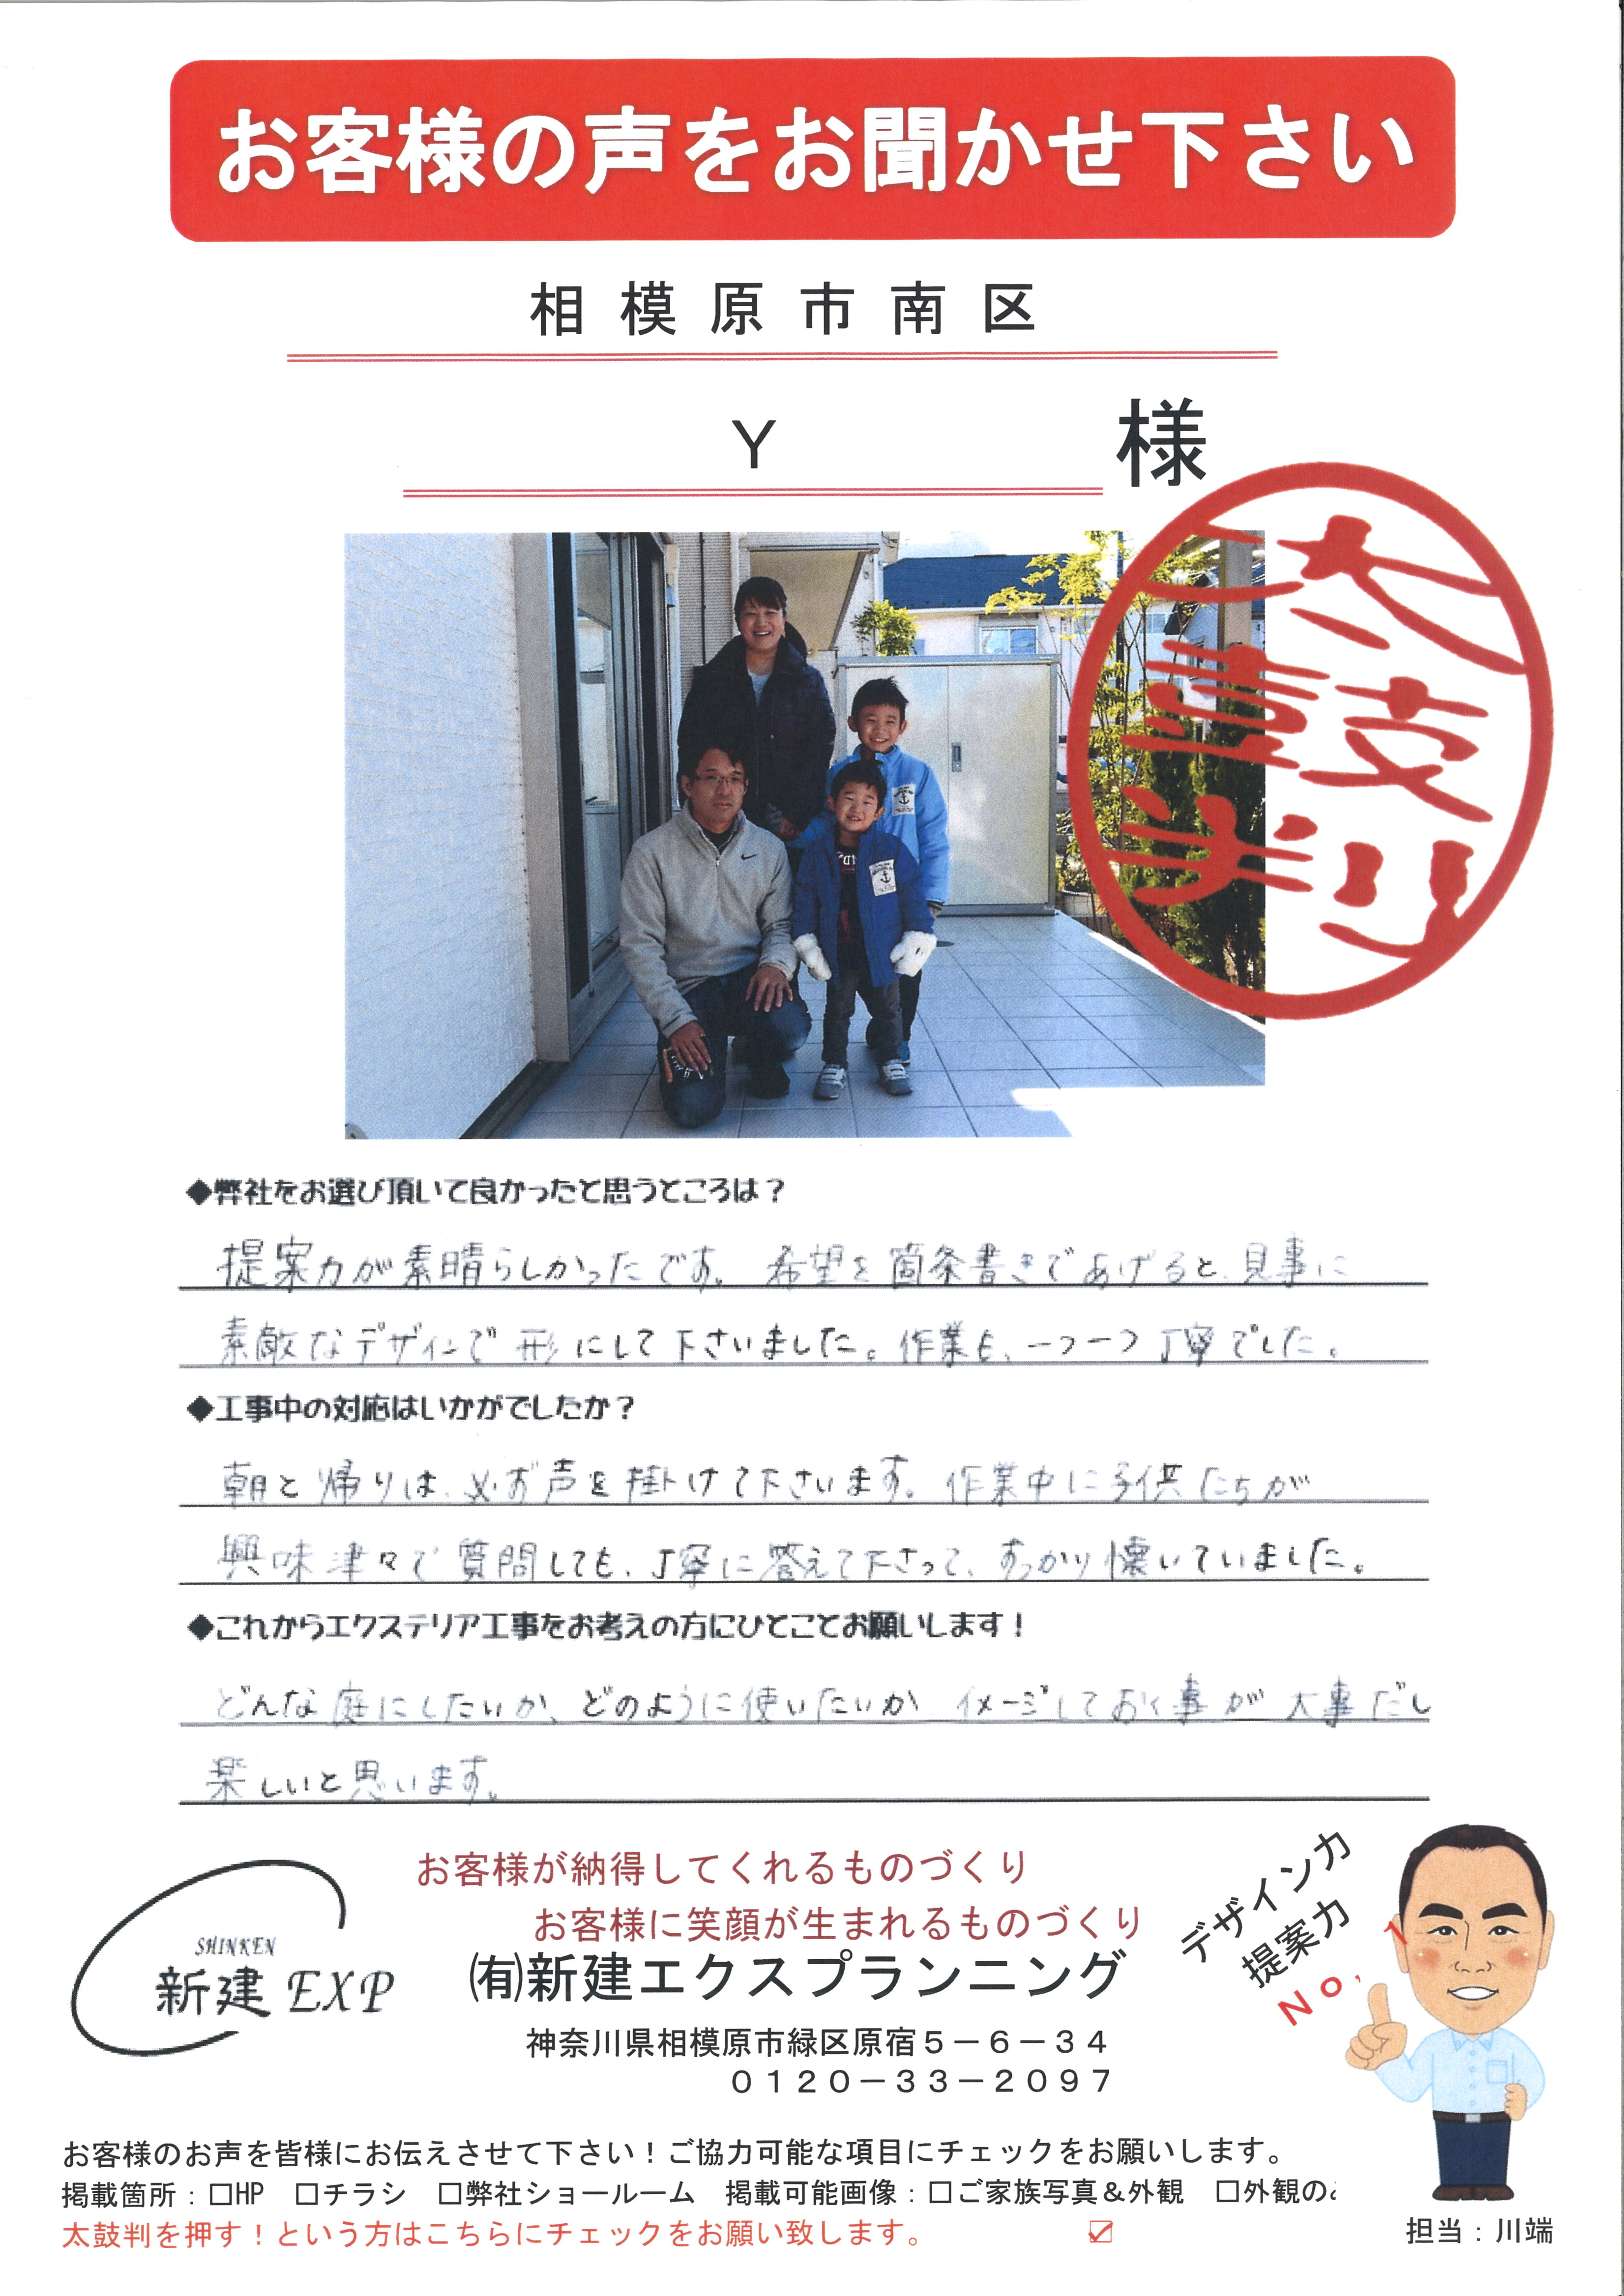 お客様の声をお聞かせ下さい
相模原市南区
Y 様
太鼓判
◆弊社をお選び頂いて良かったと思うところは？
提案力が素晴らしかったです。希望を箇条書きであげると、見事に
素敵なデザインで形にして下さいました。作業も、一つ一つ丁寧でした。
◆工事中の対応はいかがでしたか？
朝と帰りは、必ず声を掛けて下さいます。作業中に子供たちが
興味津々で質問しても、丁寧に答えて下さって、すっかり懐いていました。
◆これからエクステリア工事をお考えの方にひとことお願いします！
どんな庭にしたいか、どのように使いたいか イメージしておく事が 大事だし
楽しいと思います。
お客様が納得してくれるものづくり
お客様に笑顔が生まれるものづくり
SHINKEN
新建 EXP
㈲新建エクスプランニング
神奈川県相模原市緑区原宿５－６－３４
０１２０－３３－２０９７
デザイン力
提案力
No,1
お客様のお声を皆様にお伝えさせて下さい！ご協力可能な項目にチェックをお願いします。
掲載箇所：□HP □チラシ □弊社ショールーム 掲載可能画像：□ご家族写真＆外観 □外観の
太鼓判を押す！という方はこちらにチェックをお願い致します。 ☑
担当：川端